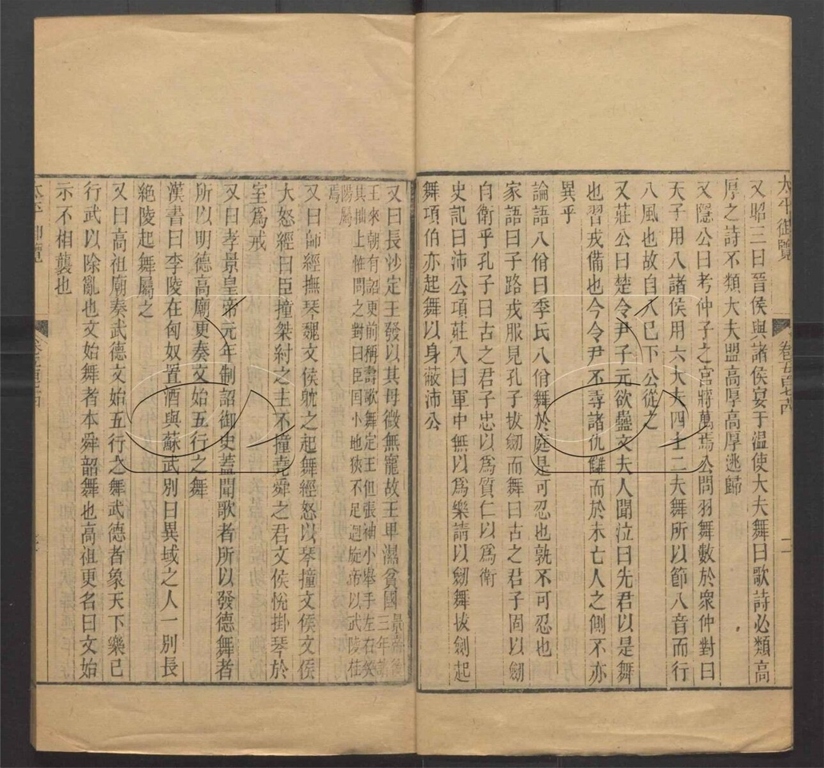 太平御覽
卷五百七十四
二
又昭三曰晉侯與諸侯宴于溫使大夫舞曰歌詩必類高
厚之詩不類大夫盟高厚高厚逃歸
又隱公曰考仲子之宮將萬焉公問羽舞數於衆仲對曰
天子用八諸侯用六大夫四士二夫舞所以節八音而行
八風也故自八已下公從之
又莊公曰楚令尹子元欲蠱文夫人聞泣曰先君以是舞
也習戎備也今令尹不尋諸仇讎而於未亡人之側不亦
異乎
論語八佾曰季氏八佾舞於庭是可忍也孰不可忍也
家語曰子路戎服見孔子拔劒而舞曰古之君子固以劒
自衛乎孔子曰古之君子忠以爲質仁以爲衛
史記曰沛公項莊入曰軍中無以爲樂請以劒舞拔劍起
舞項伯亦起舞以身蔽沛公
又曰長沙定王發以其母微無寵故王卑濕貧國景帝後
三年諸
王來朝有詔更前稱壽歌舞定王但張袖小舉手左右笑
其拙上恠問之對曰臣國小地狹不足迴旋帝以武陵桂
陽屬
焉
又曰師經撫琴魏文侯躭之起舞經怒以琴撞文侯文侯
大怒經曰臣撞桀紂之主不撞堯舜之君文侯悅掛琴於
室爲戒
又曰孝景皇帝元年制詔御史蓋聞歌者所以發德舞者
所以明德高廟更奏文始五行之舞
漢書曰李陵在匈奴置酒與蘇武別曰異域之人一別長
絶陵起舞屬之
又曰高祖廟奏武德文始五行之舞武德者象天下樂已
行武以除亂也文始舞者本舜韶舞也高祖更名曰文始
示不相襲也
太平御覽